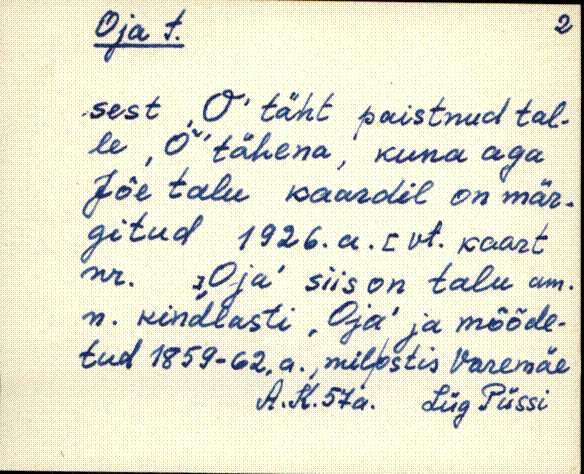 Oja t. 2
sest ‚O' täht paistnud tal-
le ‚Õ' tähena, kuna aga
Jõe talu kaardil on mär-
gitud 1926.a. [vt. kaart
nr. ] ‚Oja' siis on talu am.
n. kindlasti ‚Oja' ja mõõde-
tud 1859-62.a., mil ostis Varemäe
A.K. 57a. Lüg Püssi